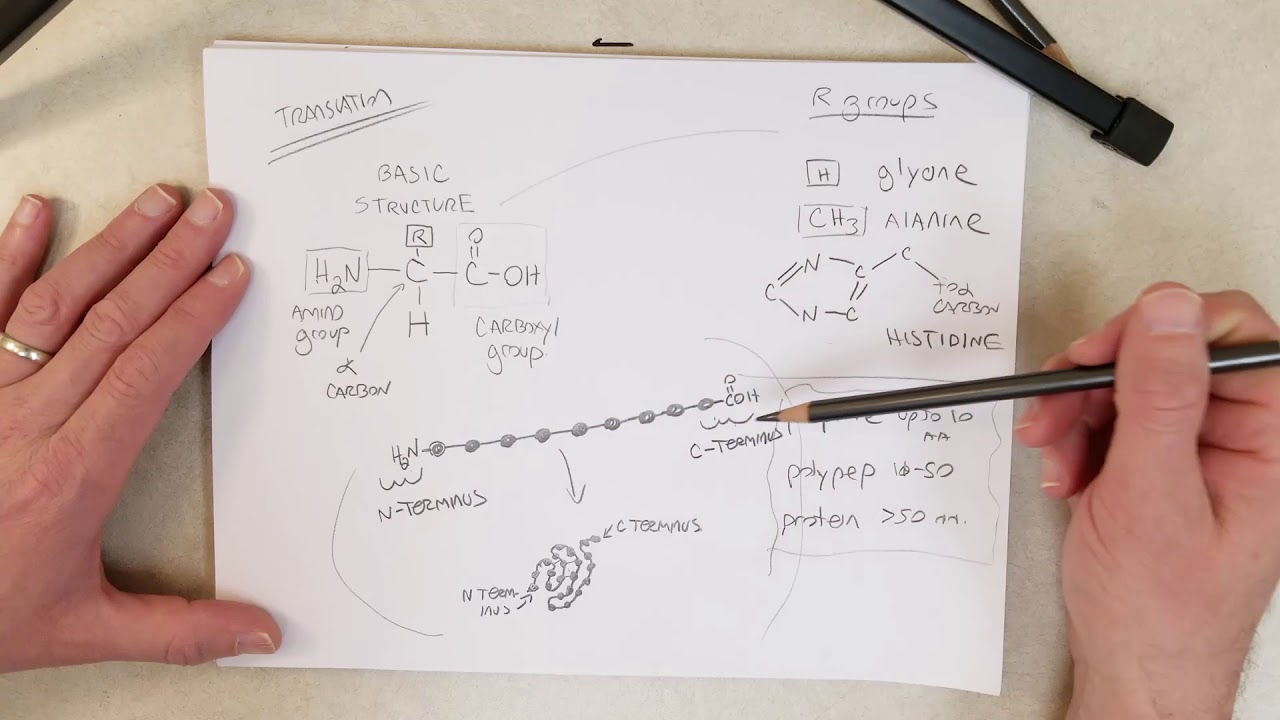 TRANSLATION
BASIC
STRUCTURE
R
O
H2N
C
C
OH
H
AMINO
group
α
CARBON
CARBOXYl
group
R groups
H glycine
CH3 AlANiNE
N
C
C
C
N
C
to α
CARBON
HISTIDINE
O
COH
H2N
C-TERMINUS
N-TERMINUS
up to 10
AA
polypep 10-50
protein >50 AA.
C TERMINUS
N TERM-
INUS